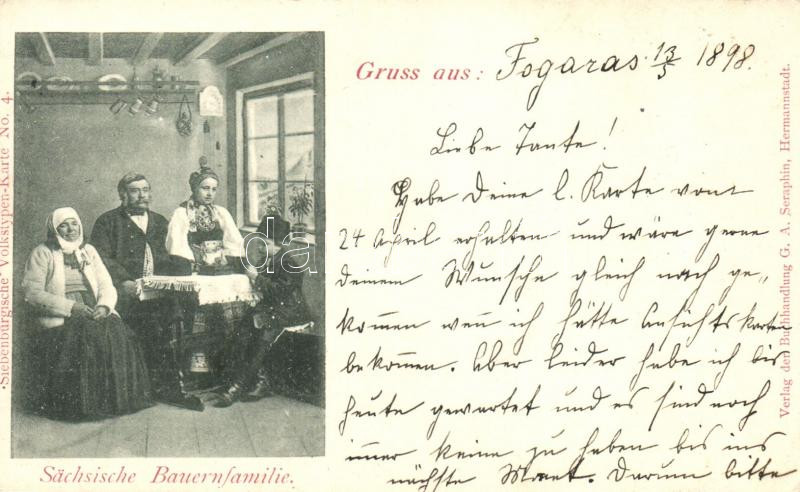 Gruss aus: Fogaras 13/5 1898.
Liebe Tante!
Habe Deine l. Karte vom
24 April erhalten und wäre gerne
deinem Wunsche gleich nach ge„
kommen wenn ich hätte Ansichtskarten
bekommen. Aber leider habe ich bis
heute gewartet und es sind noch
immer keine zu haben bis ins
nächste Monat. Darum bitte
Sächsische Bauernfamilie.
"Siebenbürgische" Volkstypen-Karte No. 4.
Verlag der Buchhandlung G. A. Seraphin, Hermannstadt.